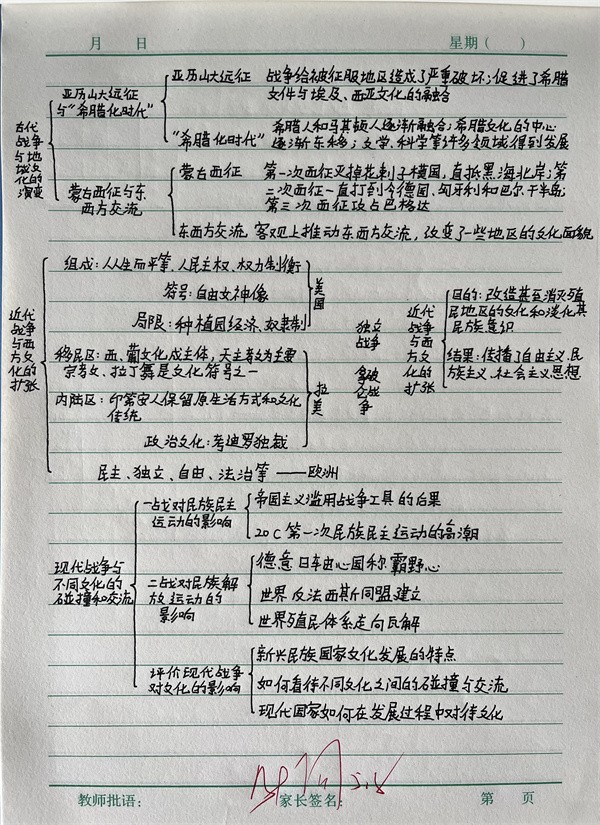 月 日 星期( )
亚历山大远征 战争给被征服地区造成了严重破坏;促进了希腊
文件与埃及、西亚文化的融合
亚历山大远征
与"希腊化时代"
"希腊化时代" 希腊人和马其顿人逐渐融合;希腊文化的中心
逐渐东移;文学、科学等许多领域得到发展
古代
战争
与地
域文
化的
演变
蒙古西征与东
西方交流
蒙古西征 第一次西征灭掉花剌子模国,直抵黑海北岸;第
二次西征一直打到今德国、匈牙利和巴尔干半岛;
第三次西征攻占巴格达
东西方交流 客观上推动东西方交流,改变了一些地区的文化面貌
近代
战争
与西
方文
化的
扩张
组成:人人生而平等,人民主权、权力制衡
符号:自由女神像
局限:种植园经济、奴隶制
美国
移民区:西、葡文化成主体,天主教为主要
宗教、拉丁舞是文化符号之一
内陆区:印第安人保留原生活方式和文化
传统
政治文化:考迪罗独裁
拉美
民主、独立、自由、法治等——欧洲
独立
战争
拿破
仑战
争
近代
战争
与西
方文
化的
扩张
目的:改造甚至消灭殖
民地区的文化和淡化其
民族意识
结果:传播了自由主义、民
族主义、社会主义思想
现代战争与
不同文化的
碰撞和交流
一战对民族民主
运动的影响
帝国主义滥用战争工具的后果
20C第一次民族民主运动的高潮
二战对民族解
放运动的
影响
德意日轴心国称霸野心
世界反法西斯同盟建立
世界殖民体系走向瓦解
评价现代战争
对文化的影响
新兴民族国家文化发展的特点
如何看待不同文化之间的碰撞与交流
现代国家如何在发展过程中对待文化
5.8
教师批语: 家长签名: 第 页